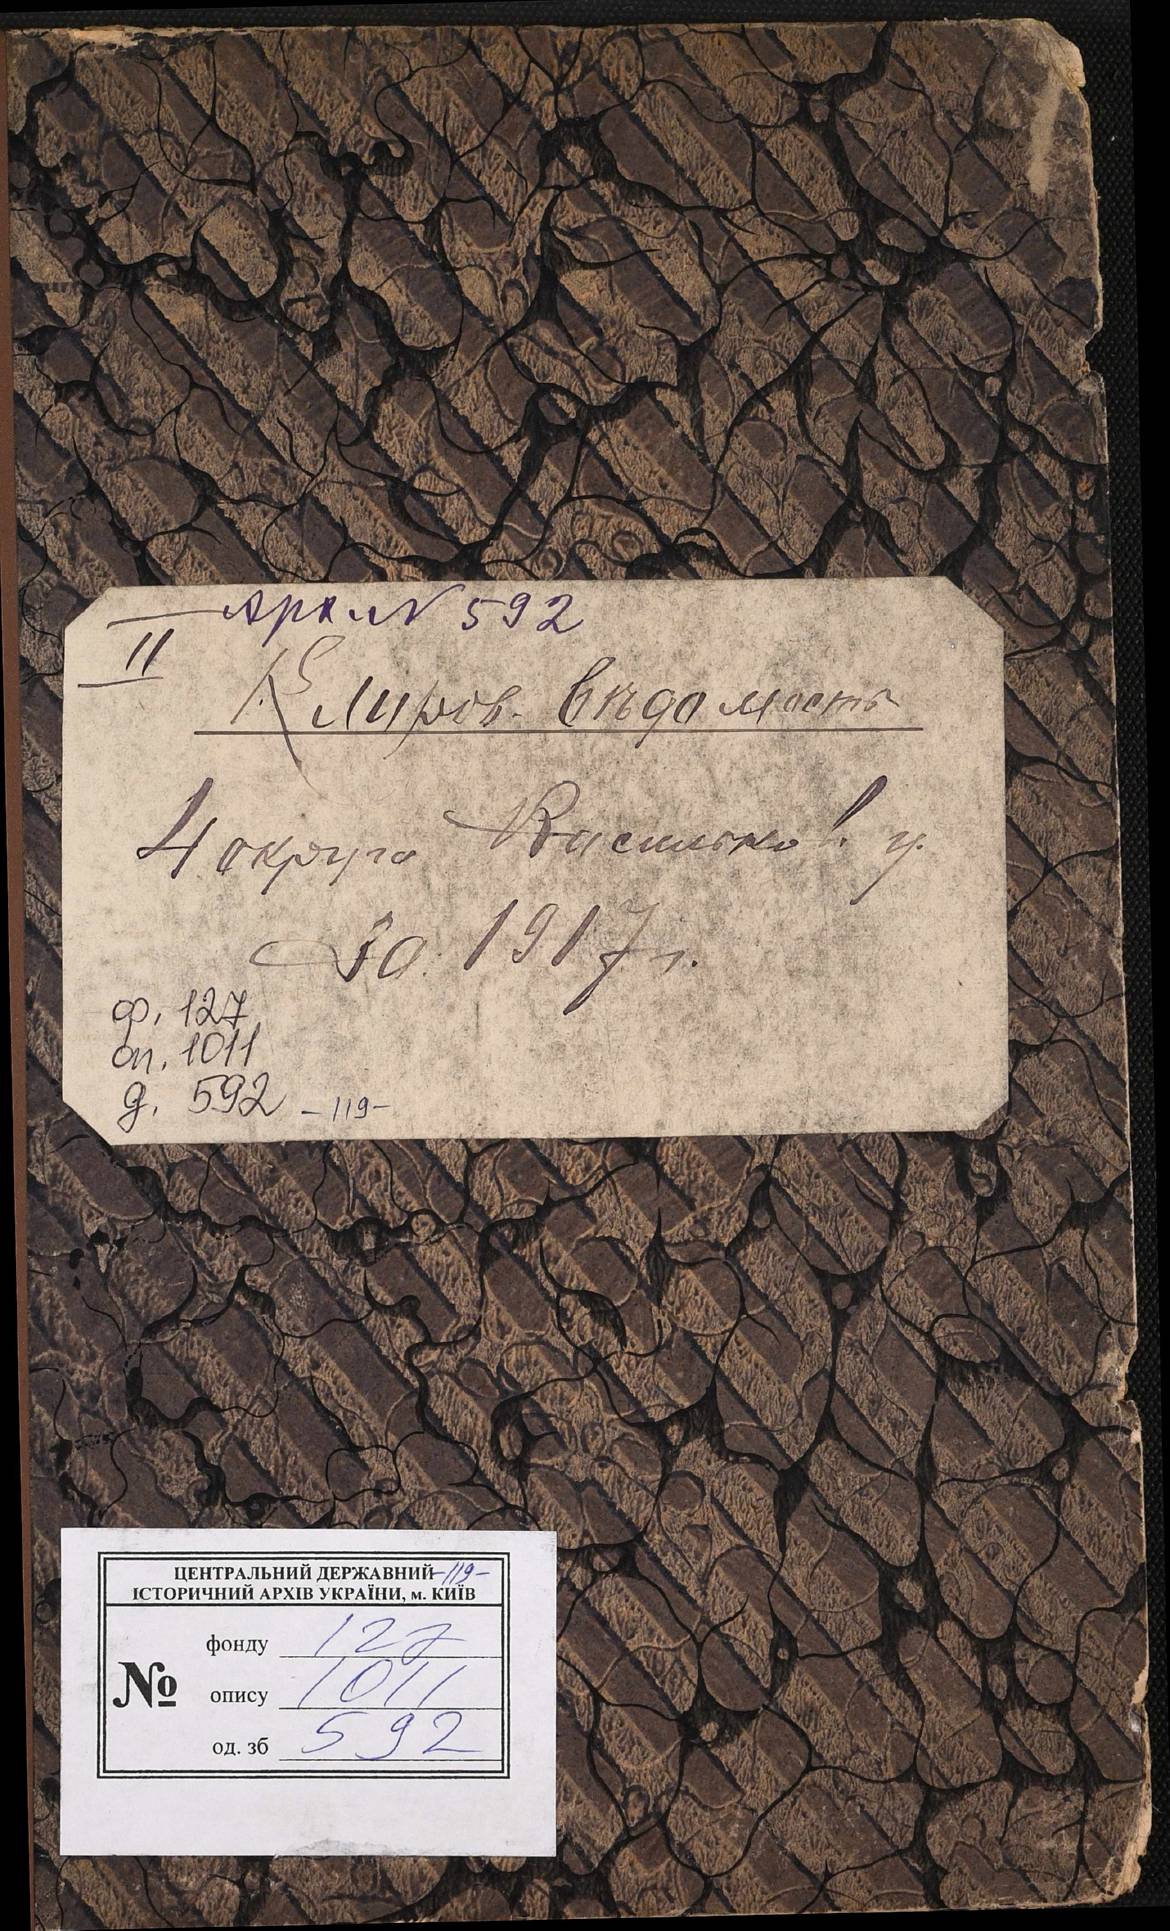 Арх. № 592
II
Клиров. вѣдомость
4 округа Васильков. у.
За 1917 г.
ф. 127
оп. 1011
д. 592 -119-
ЦЕНТРАЛЬНИЙ ДЕРЖАВНИЙ -119-
ІСТОРИЧНИЙ АРХІВ УКРАЇНИ, м. КИЇВ
фонду 127
№ опису 1011
од. зб 592